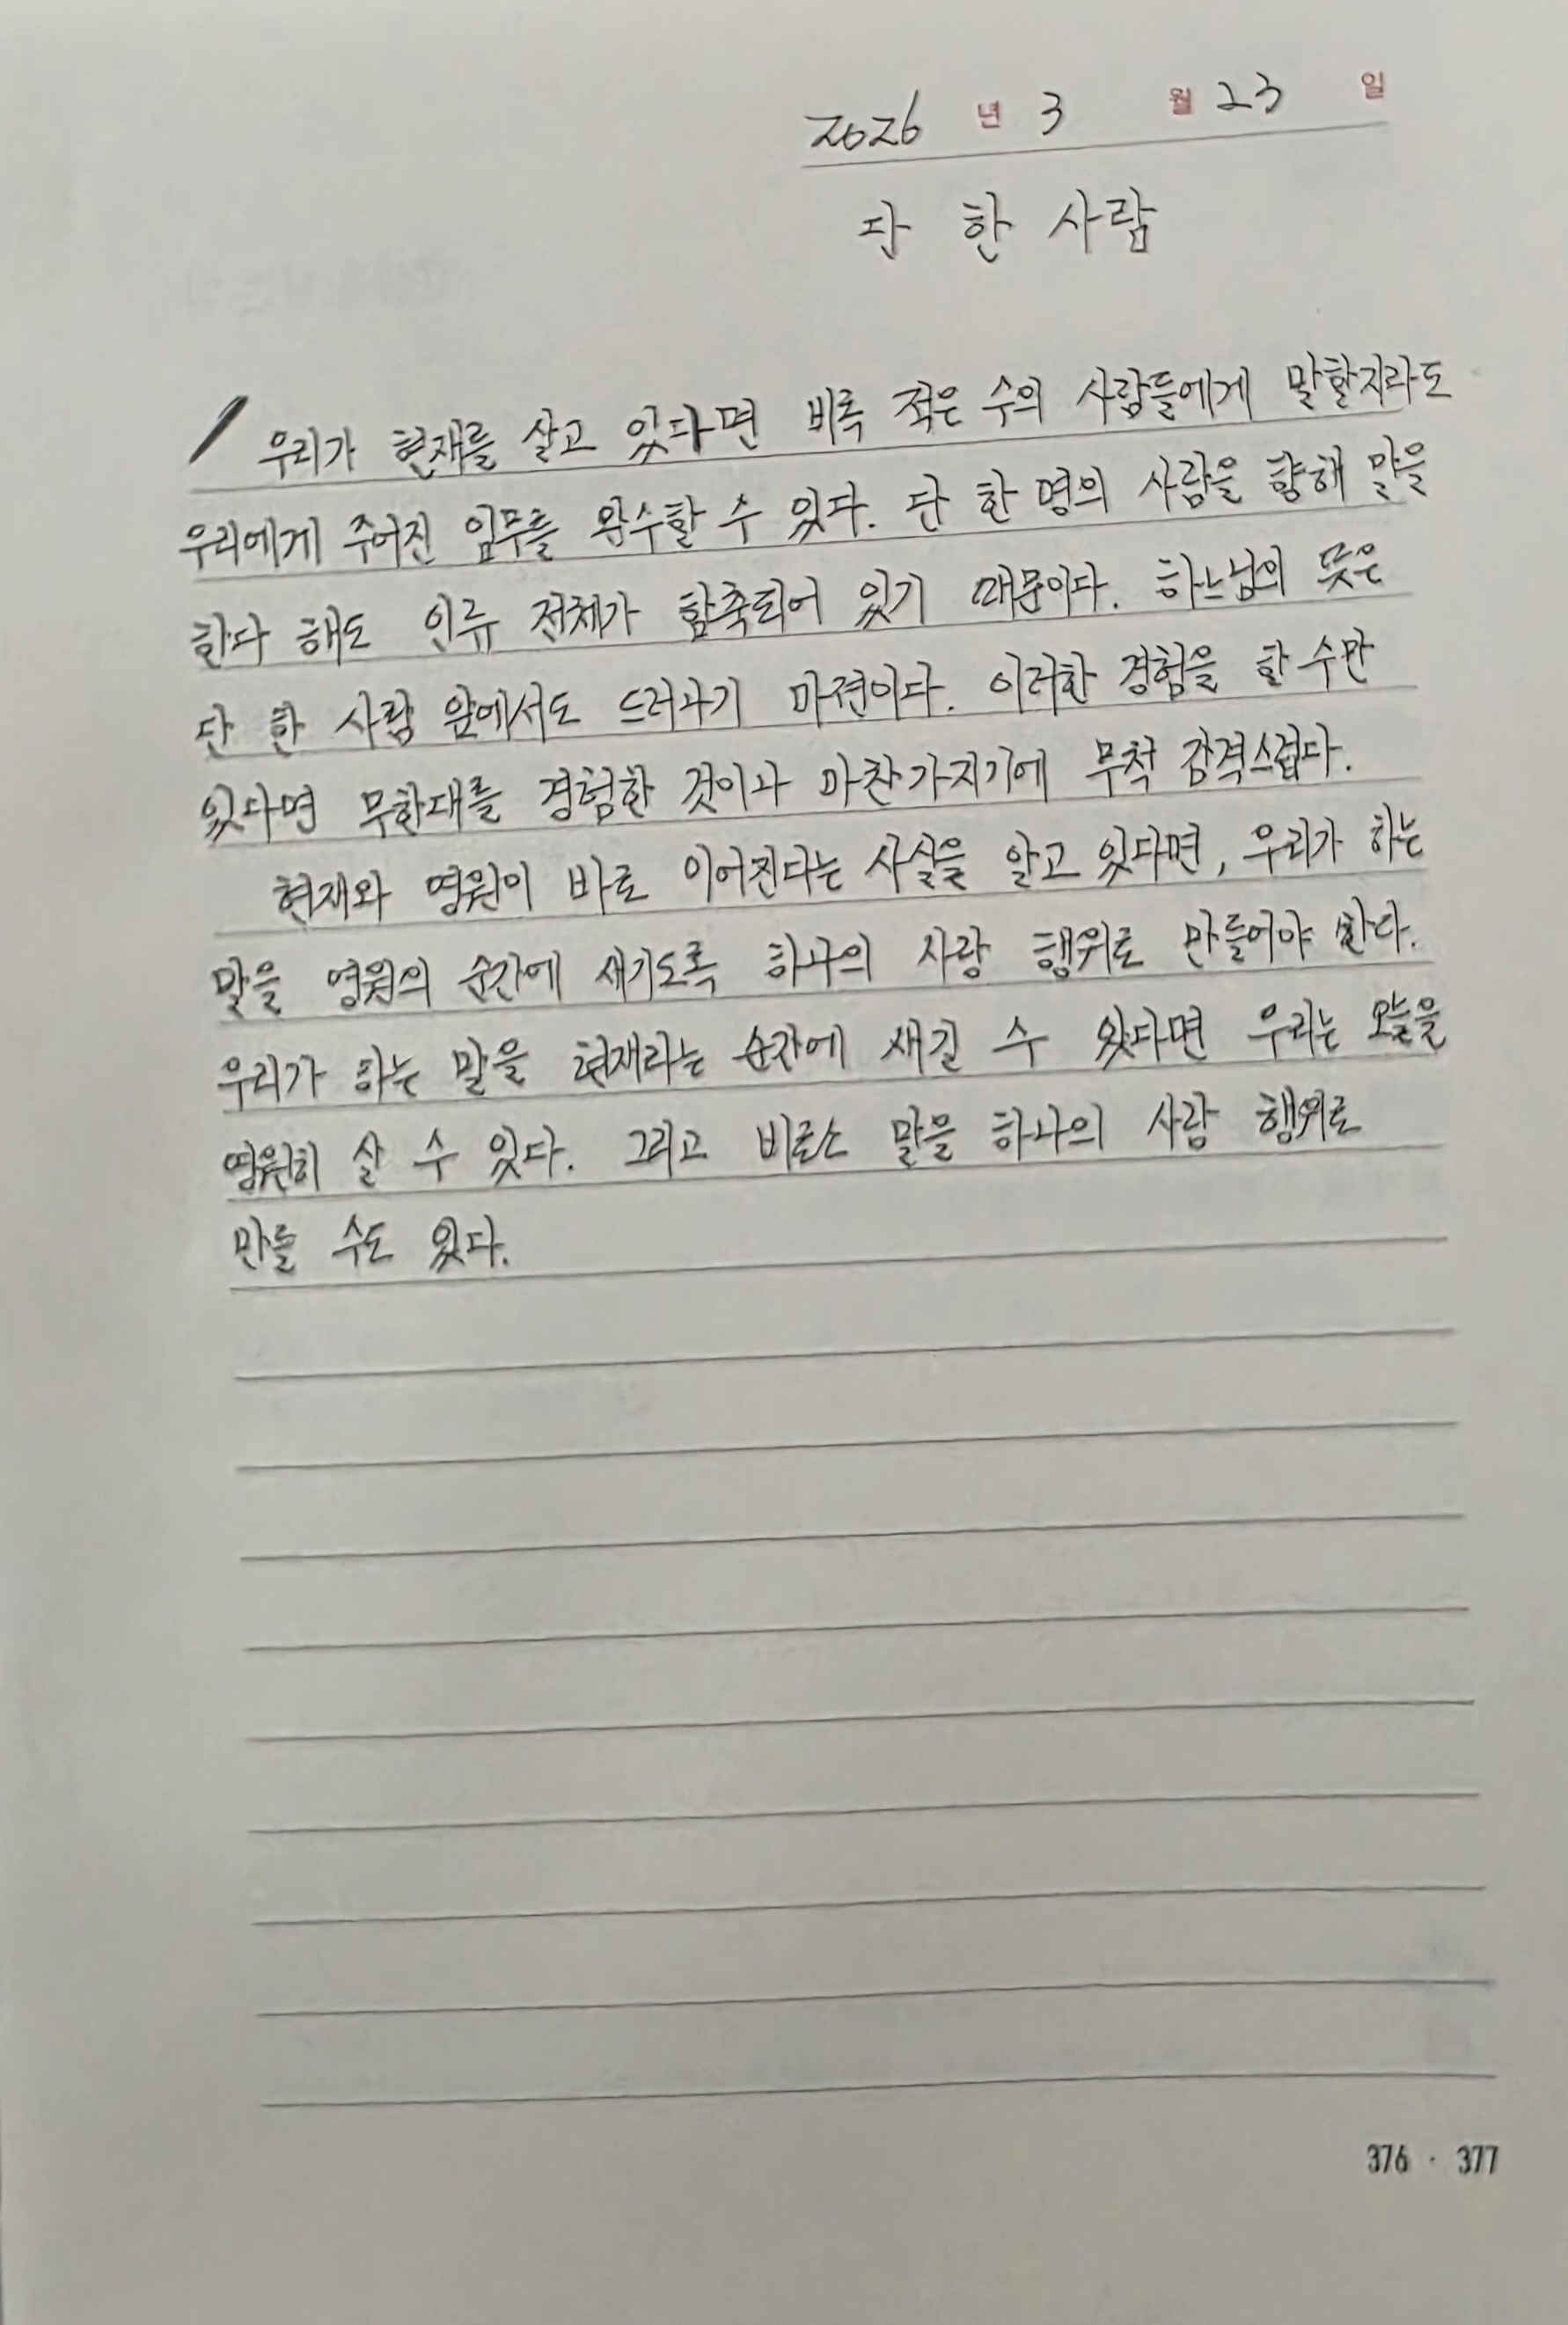 2026 년 3 월 23 일
단 한 사람
우리가 현재를 살고 있다면 비록 적은 수의 사람들에게 말할지라도
우리에게 주어진 임무를 완수할 수 있다. 단 한 명의 사람을 향해 말을
한다 해도 인류 전체가 함축되어 있기 때문이다. 하느님의 뜻은
단 한 사람 앞에서도 드러나기 마련이다. 이러한 경험을 할 수만
있다면 무한대를 경험한 것이나 마찬가지기에 무척 감격스럽다.
현재와 영원이 바로 이어진다는 사실을 알고 있다면, 우리가 하는
말을 영원의 순간에 새기도록 하나의 사랑 행위로 만들어야 한다.
우리가 하는 말을 현재라는 순간에 새길 수 있다면 우리는 오늘을
영원히 살 수 있다. 그리고 비로소 말을 하나의 사랑 행위로
만들 수도 있다.
376 · 377